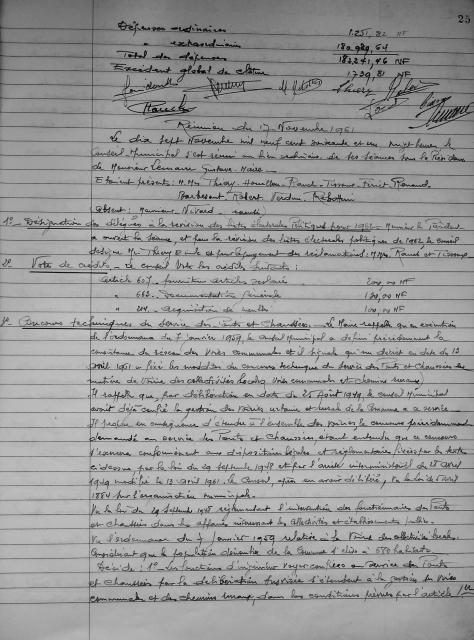 25
Dépenses ordinaires 1.251,82 NF
" extraordinaires 180.989,64
Total des dépenses 182241,46 NF
Excédent global de clôture 1739,81 NF
Réunion du 17 Novembre 1961
Le dix sept Novembre mil neuf cent soixante et un, heures, le
Conseil Municipal s'est réuni au lieu ordinaire de ses séances sous la Présidence
de Monsieur Lemaire Gustave Maire.
Etaient présents: M.Mrs Thiery Ranel Tissong Ferrit Renaud
Robert Verdun
Absent: Monsieur Nivard
1° - Désignation des délégués à la révision des listes électorales Politiques pour 1962 - Monsieur le Président
a ouvert la séance, et pour la révision des listes électorales politiques de 1962 le conseil
désigne Mr Thiery et pour jugement des réclamations: M.Mrs Ranel et Tissong
2° Vote de crédits - Le conseil vote les crédits suivants:
Article 607 fourniture articles scolaires 200,00 NF
" 663 Documentation Générale 100,00 NF
" 214 acquisition de 100,00 NF
3° - Concours techniques du service des Ponts et Chaussées - Le Maire rappelle qu'en exécution
de l'ordonnance du 7 janvier 1959, le conseil Municipal a défini précédemment la
consistance du réseau des voies communales et il signale qu'un décret en date du 13
avril 1961 a fixé les modalités du concours technique du service des Ponts et Chaussées en
matière de Voirie des collectivités locales (voies communales et chemins ruraux)
Il rappelle que, par délibération en date du 25 Août 1949, le conseil Municipal
avait déjà confié la gestion des voiries urbaine et rurale de la Commune à ce service
Il propose en conséquence d'étendre à l'ensemble des voiries le concours précédemment
demandé au service des Ponts et Chaussées étant entendu que ce concours
s'exerce conformément aux dispositions légales et réglementaires fixées par les textes
ci-dessus, par la loi du 29 septembre 1948 et par l'arrêté interministériel du 28 avril
1949 modifié le 13 avril 1961. Le Conseil, après en avoir délibéré, Vu la loi du 5 Avril
1884 sur l'organisation municipale.
Vu la loi du 29 septembre 1948 réglementant l'intervention des fonctionnaires des Ponts
et chaussées dans les affaires intéressant les collectivités et établissements publics.
Vu l'ordonnance du 7 janvier 1959 relative à la Voirie des collectivités locales.
Considérant que la population de la Commune s'élève à 580 habitants.
Décide: 1° - Les fonctions d'ingénieur voyer confiées au service des Ponts
et chaussées par la délibération susvisée s'étendent à la gestion des voies
communales et des chemins ruraux, dans les conditions prévues par l'article 1er